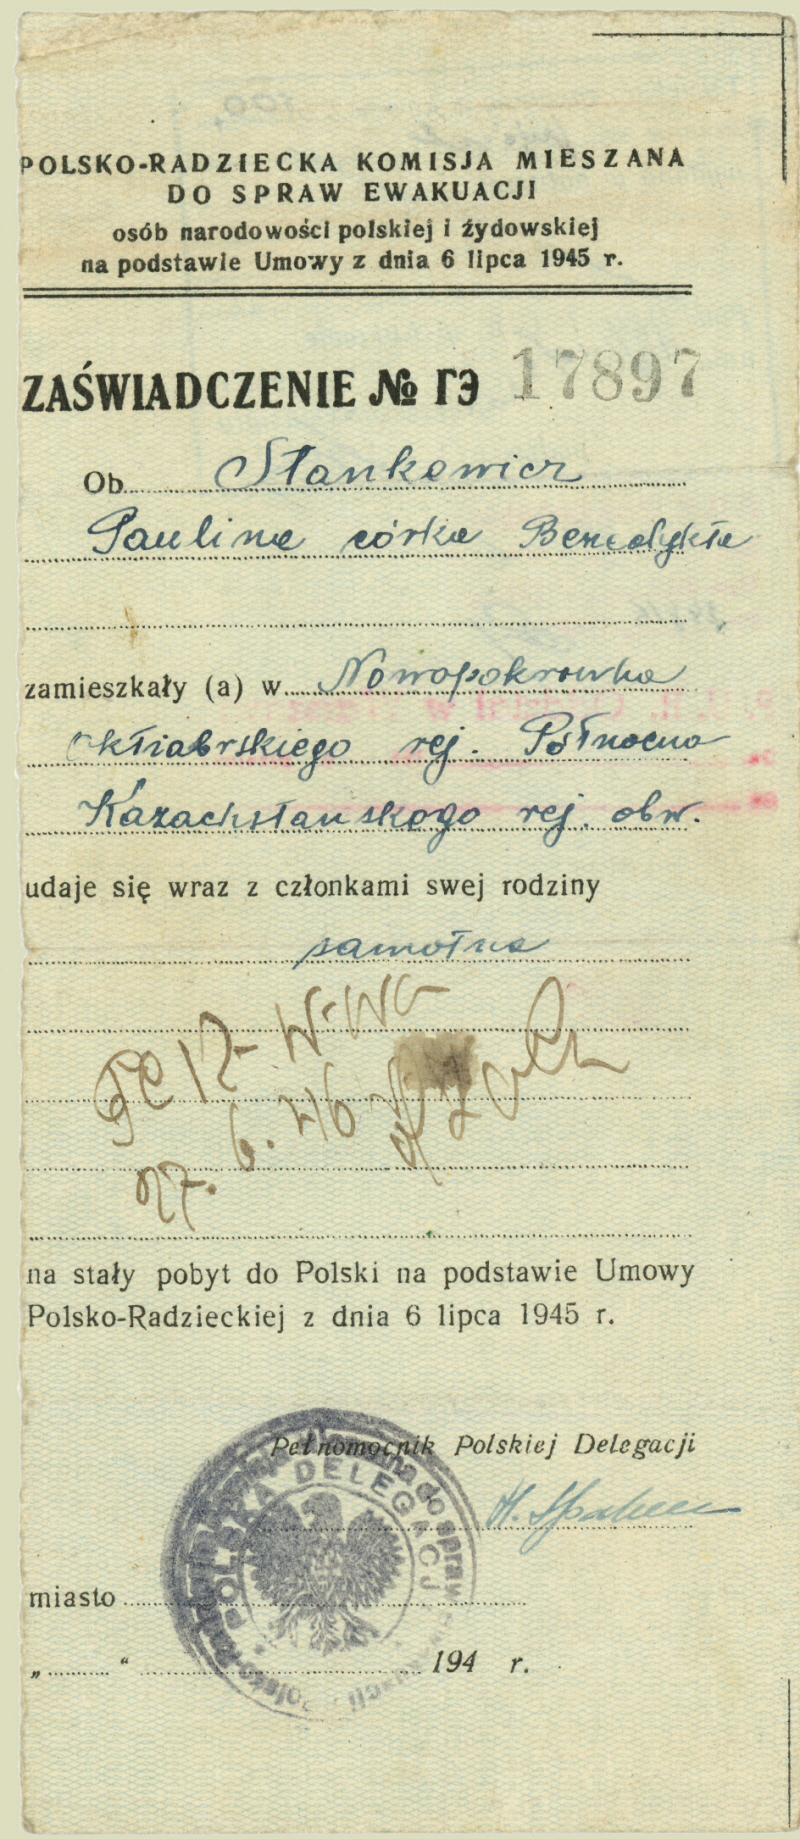 POLSKO-RADZIECKA KOMISJA MIESZANA
DO SPRAW EWAKUACJI
osób narodowości polskiej i żydowskiej
na podstawie Umowy z dnia 6 lipca 1945 r.
ZAŚWIADCZENIE № ГЭ 17897
Ob. Stankewicz
Paulina córka Benedykta
zamieszkały (a) w Nowopokrowka
Oktiabrskiego rej. Północno
Kazachstanskogo rej. obw.
udaje się wraz z członkami swej rodziny
samotna
W-wa
27. 6. 46
na stały pobyt do Polski na podstawie Umowy
Polsko-Radzieckiej z dnia 6 lipca 1945 r.
Pełnomocnik Polskiej Delegacji
POLSKA DELEGACJ
do spraw
miasto
„ “ 194 r.